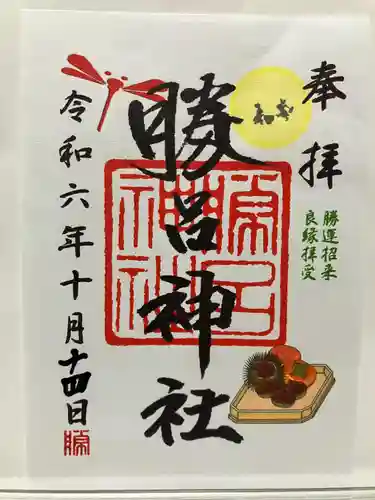 奉拝
勝運招来
良縁拝受
勝呂神社
勝呂神社
令和六年十月十四日
勝